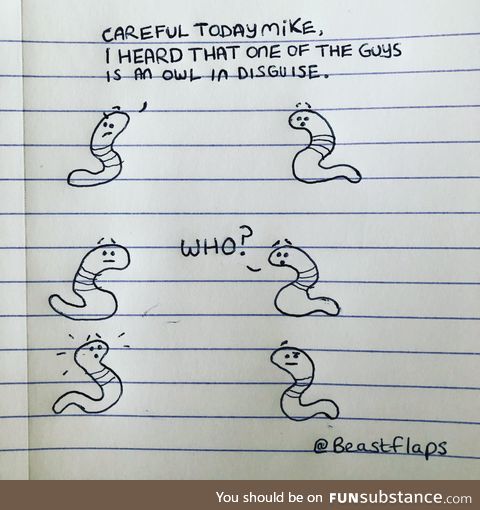 CAREFUL TODAY MIKE,
I HEARD THAT ONE OF THE GUYS
IS AN OWL IN DISGUISE.
WHO?
@Beastflaps
You should be on FUNsubstance.com